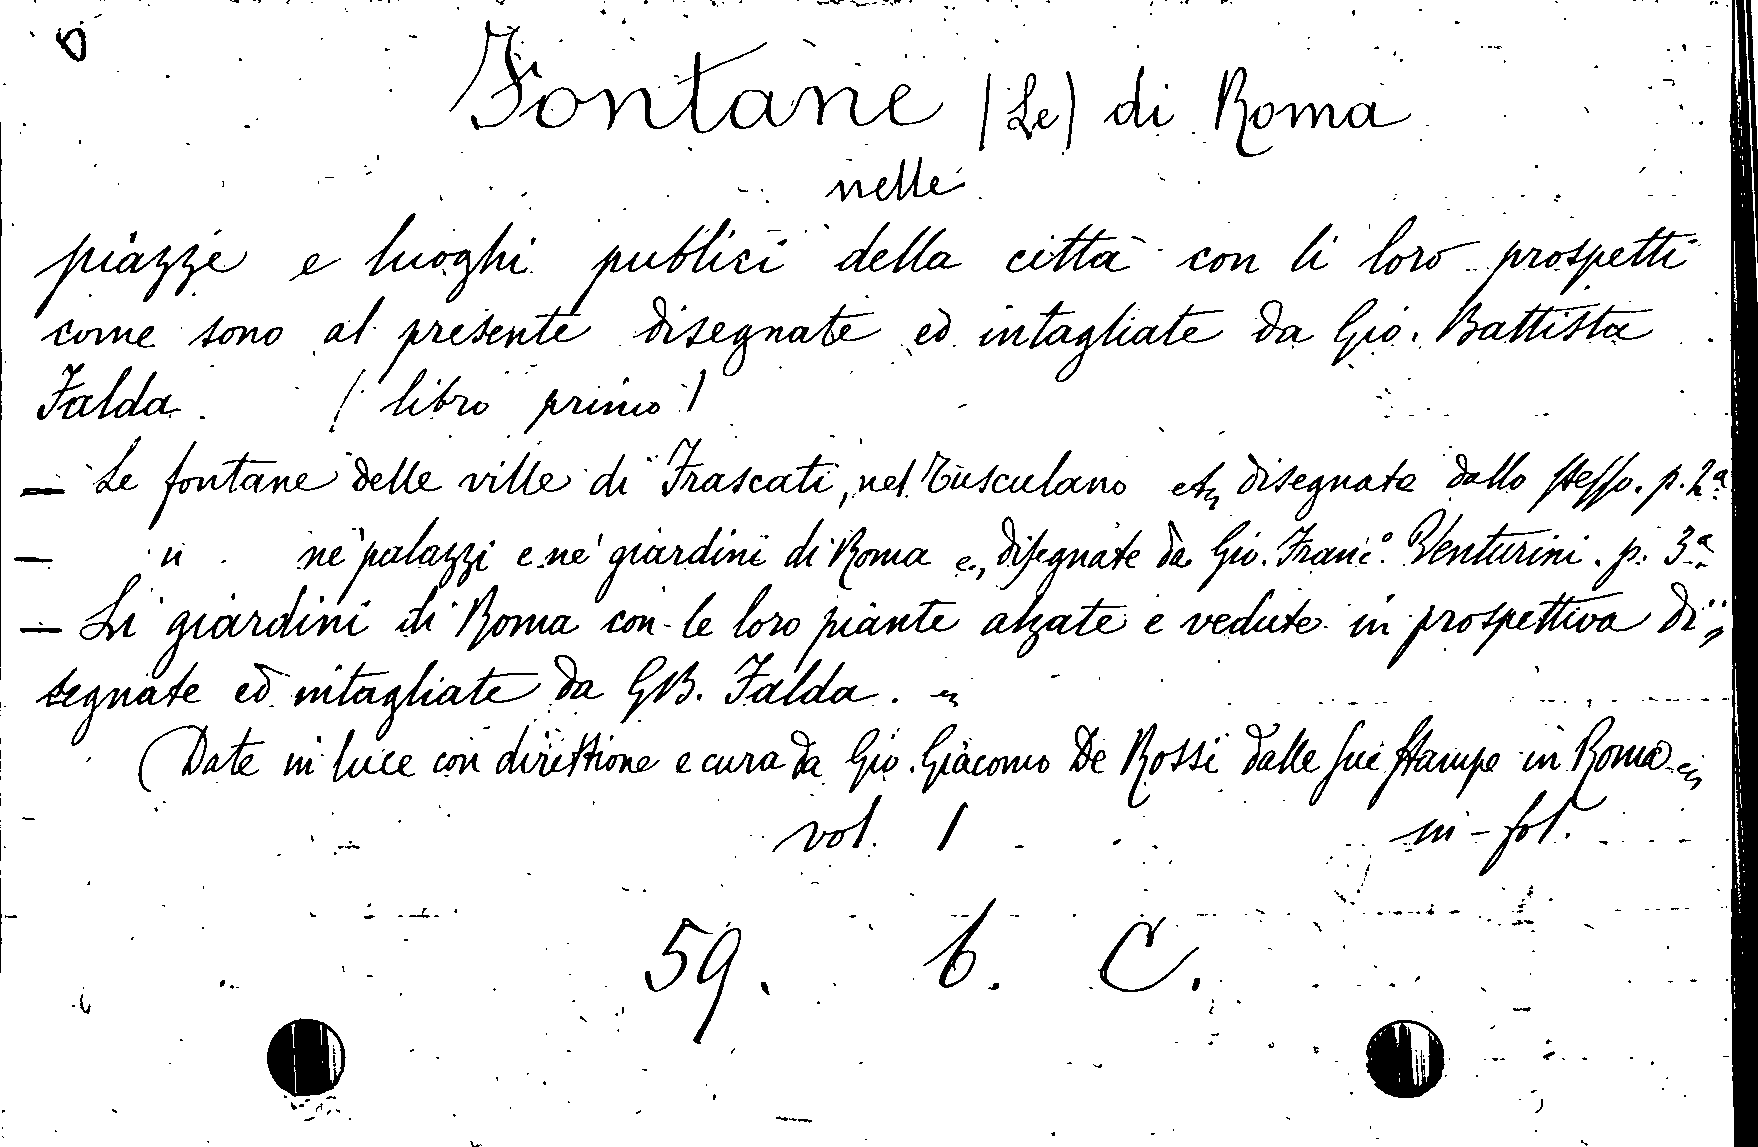 Fontane (Le) di Roma
nelle
piazze e luoghi publici della città con li loro prospetti
come sono al presente disegnate ed intagliate da Gio. Battista
Falda. (libro primo)
— Le fontane delle ville di Frascati, nel Tusculano etc, disegnate dallo stesso. p. 2ª
— " ne' palazzi e ne' giardini di Roma etc, disegnate da Gio. Franc.º Venturini. p. 3ª
— Li giardini di Roma con le loro piante alzate e vedute in prospettiva di,,
segnate ed intagliate da GB. Falda.
(Date in luce con direttione e cura da Gio. Giacomo De Rossi dalle sue stampe in Roma
vol. 1 in-fol.
59. 6. C.